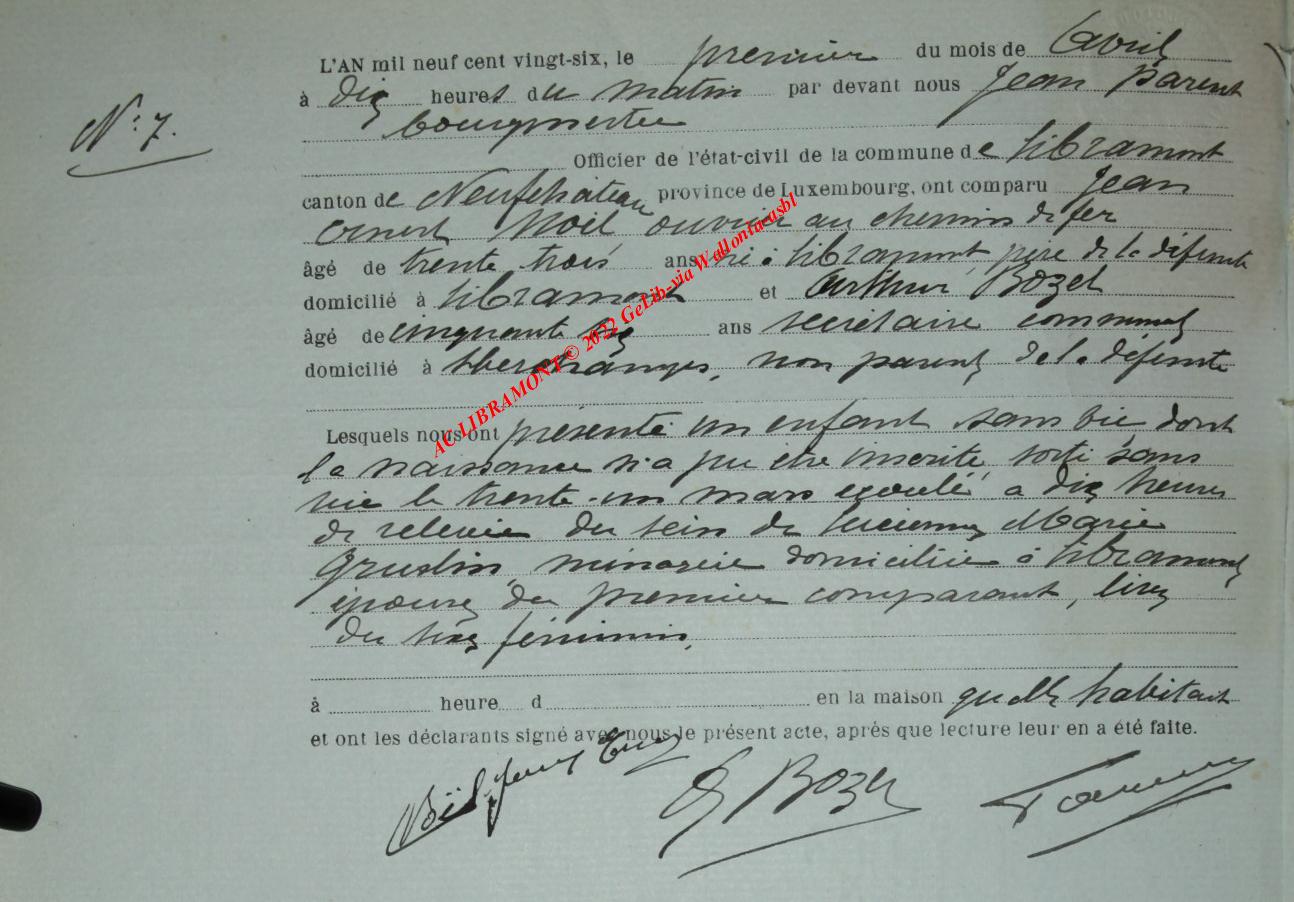 L'AN mil neuf cent vingt-six, le premier du mois de Avril
à dix heures du matin par devant nous Jean Parent
N° 7.
bourgmestre
Officier de l'état-civil de la commune de Libramont
canton de Neufchâteau province de Luxembourg, ont comparu Jean
Ernest Noël ouvrier au chemin de fer
âgé de trente trois ans né à Libramont, père de la défunte
domicilié à Libramont et Arthur Bozet
âgé de cinquante six ans secrétaire communal
domicilié à non parent de la défunte
Lesquels nous ont présenté un enfant sans vie dont
la naissance n'a pu être inscrite sorti sans
vie le trente-un mars écoulé à dix heures
de relevée du sein de Lucienne Marie
ménagère domiciliée à Libramont
épouse du premier comparant,
du sexe féminin,
à heure d en la maison qu'elle habitait
et ont les déclarants signé avec nous le présent acte, après que lecture leur en a été faite.
Noël Jean Ernest Bozet Parent
AC LIBRAMONT © 2022 GeLib-via Wallonia-asbl